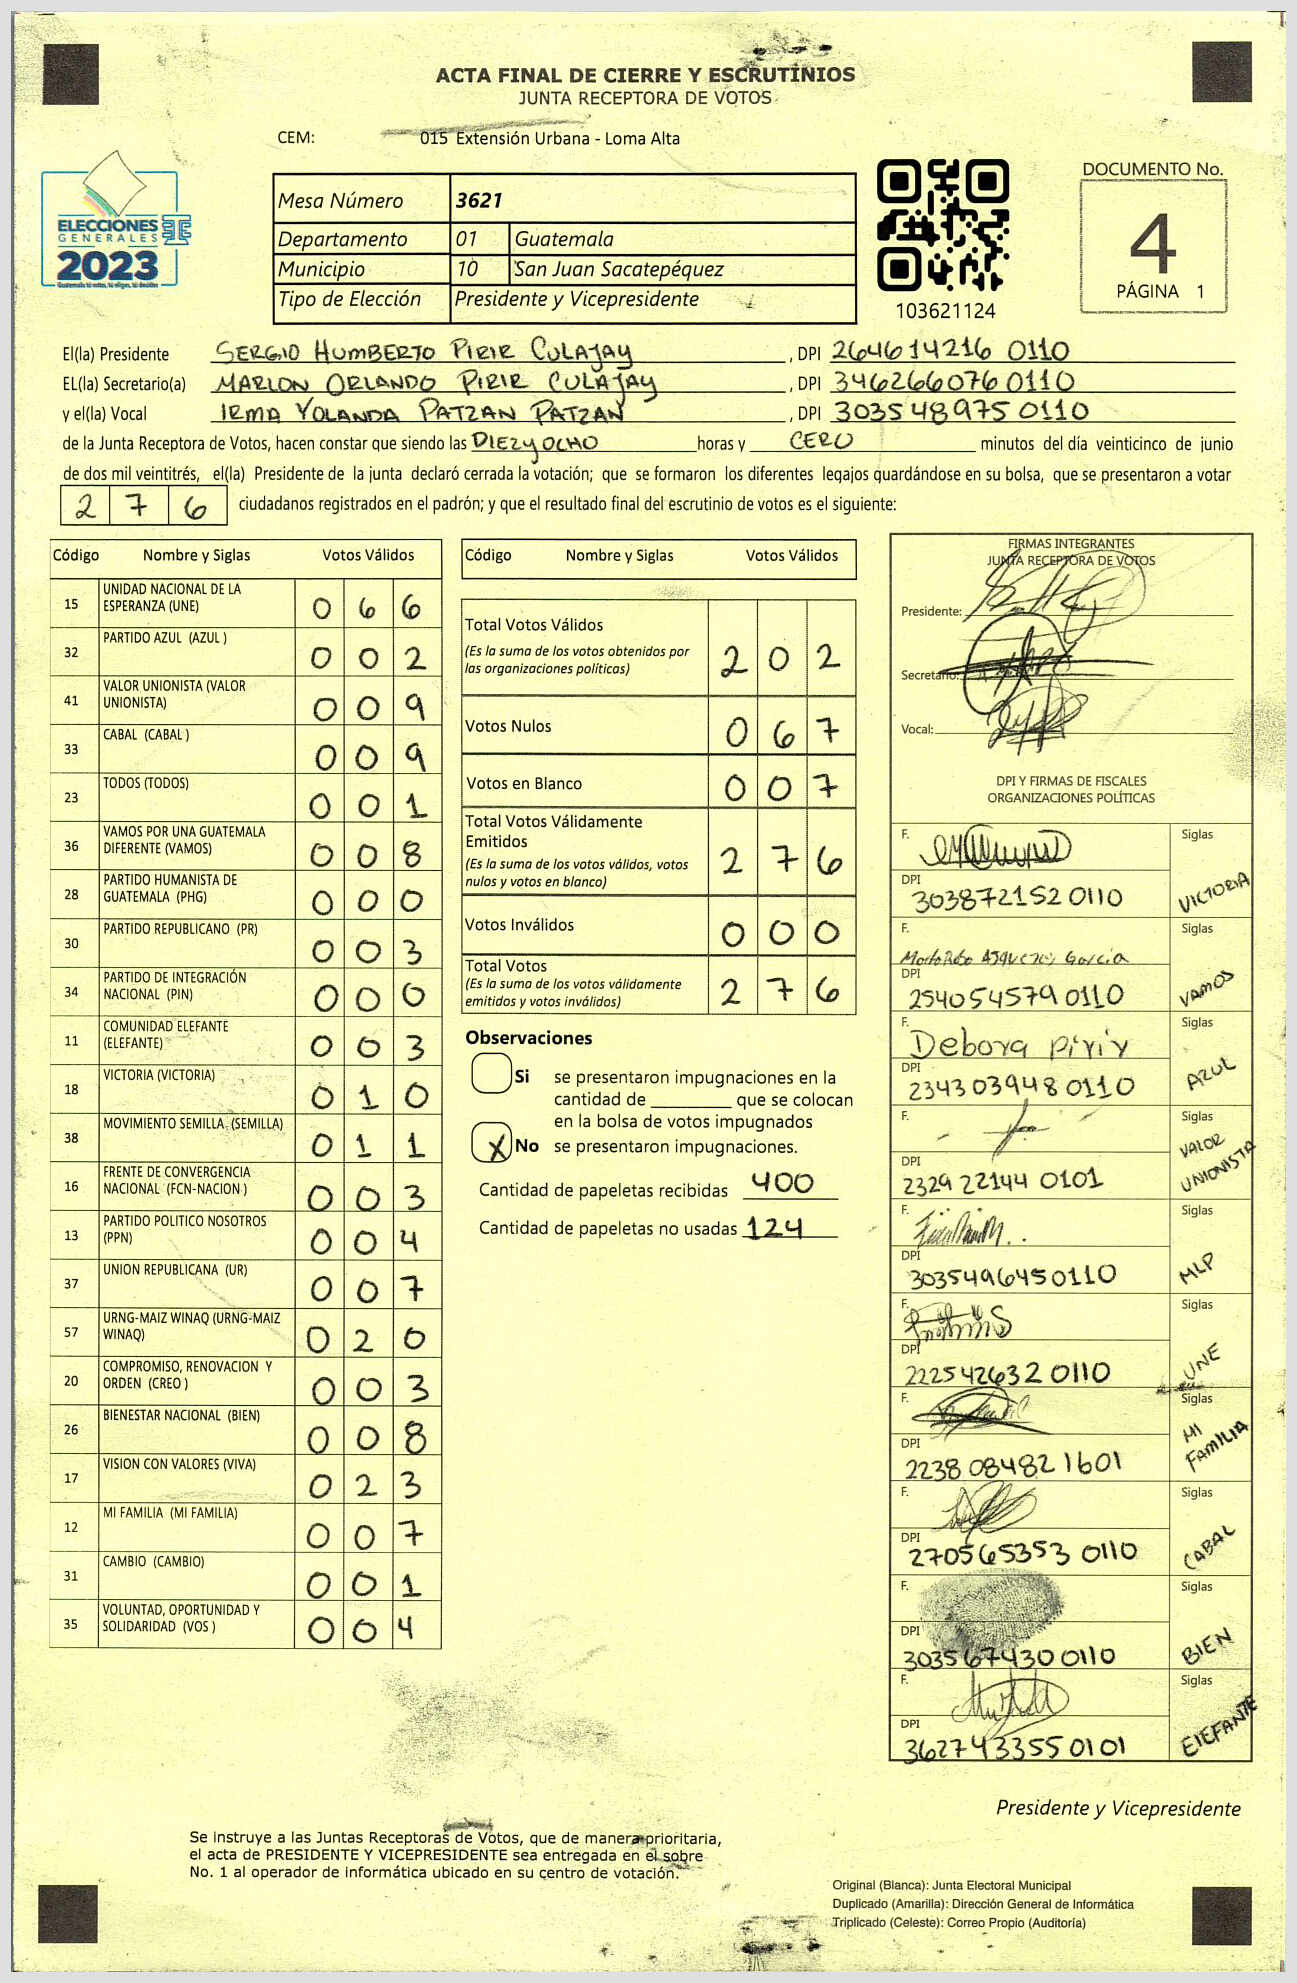 ACTA FINAL DE CIERRE Y ESCRUTINIOS
JUNTA RECEPTORA DE VOTOS
CEM: 015 Extensión Urbana - Loma Alta
ELECCIONES
GENERALES
2023
Guatemala tú votas, tú eliges, tú decides
Mesa Número 3621
Departamento 01 Guatemala
Municipio 10 San Juan Sacatepéquez
Tipo de Elección Presidente y Vicepresidente
103621124
DOCUMENTO No.
4
PÁGINA 1
El(la) Presidente SERGIO HUMBERTO PIRIR CULAJAY , DPI 264614216 0110
EL(la) Secretario(a) MARLON ORLANDO PIRIR CULAJAY , DPI 346266076 0110
y el(la) Vocal IRMA YOLANDA PATZAN PATZAN , DPI 303548975 0110
de la Junta Receptora de Votos, hacen constar que siendo las DIEZ Y OCHO horas y CERO minutos del día veinticinco de junio
de dos mil veintitrés, el(la) Presidente de la junta declaró cerrada la votación; que se formaron los diferentes legajos guardándose en su bolsa, que se presentaron a votar
2 7 6 ciudadanos registrados en el padrón; y que el resultado final del escrutinio de votos es el siguiente:
Código Nombre y Siglas Votos Válidos
15 UNIDAD NACIONAL DE LA ESPERANZA (UNE) 0 6 6
32 PARTIDO AZUL (AZUL ) 0 0 2
41 VALOR UNIONISTA (VALOR UNIONISTA) 0 0 9
33 CABAL (CABAL ) 0 0 9
23 TODOS (TODOS) 0 0 1
36 VAMOS POR UNA GUATEMALA DIFERENTE (VAMOS) 0 0 8
28 PARTIDO HUMANISTA DE GUATEMALA (PHG) 0 0 0
30 PARTIDO REPUBLICANO (PR) 0 0 3
34 PARTIDO DE INTEGRACIÓN NACIONAL (PIN) 0 0 0
11 COMUNIDAD ELEFANTE (ELEFANTE) 0 0 3
18 VICTORIA (VICTORIA) 0 1 0
38 MOVIMIENTO SEMILLA (SEMILLA) 0 1 1
16 FRENTE DE CONVERGENCIA NACIONAL (FCN-NACION ) 0 0 3
13 PARTIDO POLITICO NOSOTROS (PPN) 0 0 4
37 UNION REPUBLICANA (UR) 0 0 7
57 URNG-MAIZ WINAQ (URNG-MAIZ WINAQ) 0 2 0
20 COMPROMISO, RENOVACION Y ORDEN (CREO ) 0 0 3
26 BIENESTAR NACIONAL (BIEN) 0 0 8
17 VISION CON VALORES (VIVA) 0 2 3
12 MI FAMILIA (MI FAMILIA) 0 0 7
31 CAMBIO (CAMBIO) 0 0 1
35 VOLUNTAD, OPORTUNIDAD Y SOLIDARIDAD (VOS ) 0 0 4
Código Nombre y Siglas Votos Válidos
Total Votos Válidos
(Es la suma de los votos obtenidos por
las organizaciones políticas) 2 0 2
Votos Nulos 0 6 7
Votos en Blanco 0 0 7
Total Votos Válidamente
Emitidos
(Es la suma de los votos válidos, votos
nulos y votos en blanco) 2 7 6
Votos Inválidos 0 0 0
Total Votos
(Es la suma de los votos válidamente
emitidos y votos inválidos) 2 7 6
Observaciones
Si se presentaron impugnaciones en la
cantidad de ________ que se colocan
en la bolsa de votos impugnados
X No se presentaron impugnaciones.
Cantidad de papeletas recibidas 400
Cantidad de papeletas no usadas 124
FIRMAS INTEGRANTES
JUNTA RECEPTORA DE VOTOS
Presidente:
Secretario:
Vocal:
DPI Y FIRMAS DE FISCALES
ORGANIZACIONES POLÍTICAS
F. Siglas
DPI 303872152 0110 VICTORIA
F. García Siglas
DPI 254054579 0110 VAMOS
F. Debora Pirir Siglas
DPI 234303948 0110 AZUL
F. Siglas
DPI 2329 22144 0101 VALOR UNIONISTA
F. Siglas
DPI 3035496450110 MLP
F. Siglas
DPI 222542632 0110 UNE
F. Siglas
DPI 2238 08482 1601 MI FAMILIA
F. Siglas
DPI 270565353 0110 CABAL
F. Siglas
DPI 303567430 0110 BIEN
F. Siglas
DPI 362743355 0101 ElEFANTE
Presidente y Vicepresidente
Se instruye a las Juntas Receptoras de Votos, que de manera prioritaria,
el acta de PRESIDENTE Y VICEPRESIDENTE sea entregada en el sobre
No. 1 al operador de informática ubicado en su centro de votación.
Original (Blanca): Junta Electoral Municipal
Duplicado (Amarilla): Dirección General de Informática
Triplicado (Celeste): Correo Propio (Auditoría)